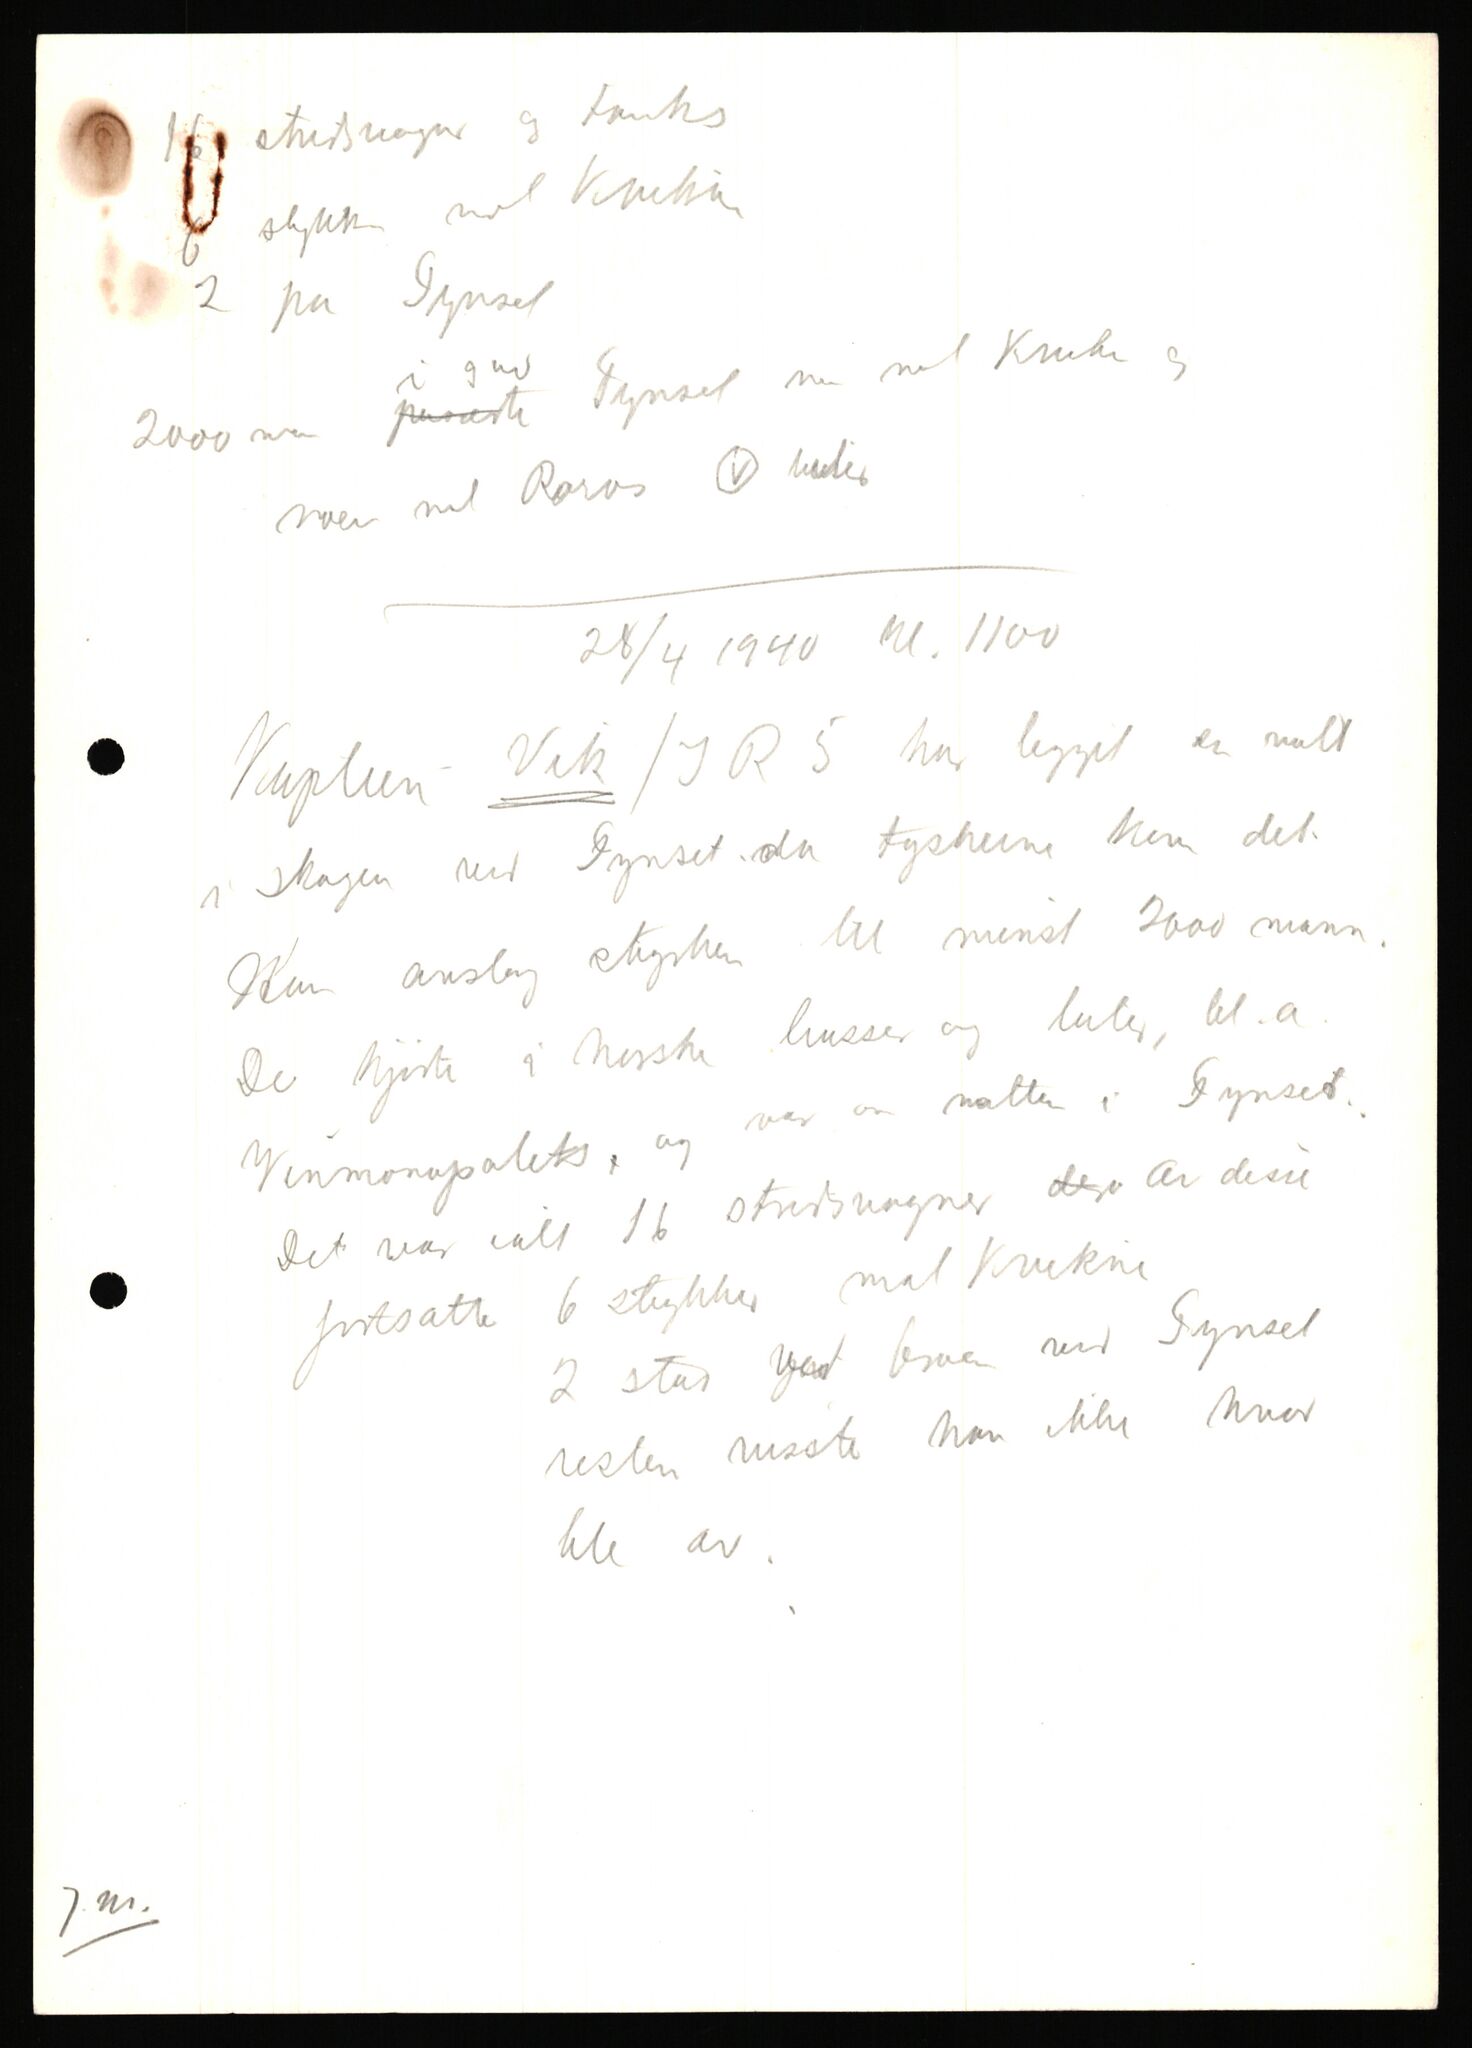 16 stridsvogner og tanks
6 stykker mot Kvikne
2 på Tynset
i går
2000 man passerte Tynset noe mot Kvikne og
noen mot Røros V biler
28/4 1940 kl. 1100
Kaptein Vik / I R 5 har ligget en natt
i skogen ved Tynset da tyskerne kom det.
Han anslog styrken til minst 2000 mann.
De kjørte i norske busser og biler, bl.a.
Vinmonopolets, og var om natten i Tynset.
Det var ialt 16 stridsvogner derav Av disse
fortsatte 6 stykker mot Kvikne
2 stod ved broen ved Tynset
resten visste han ikke hvor
ble av.
J.M.